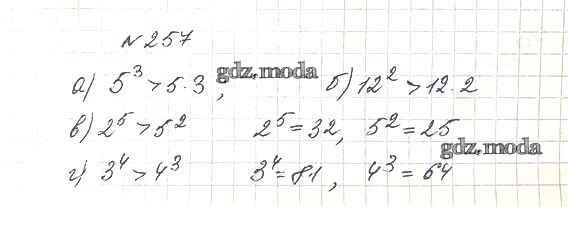 №257
а) 5³ > 5·3, gdz.moda б) 12² > 12·2
в) 2⁵ > 5² 2⁵ = 32, 5² = 25
gdz.moda
г) 3⁴ > 4³ 3⁴ = 81, 4³ = 64